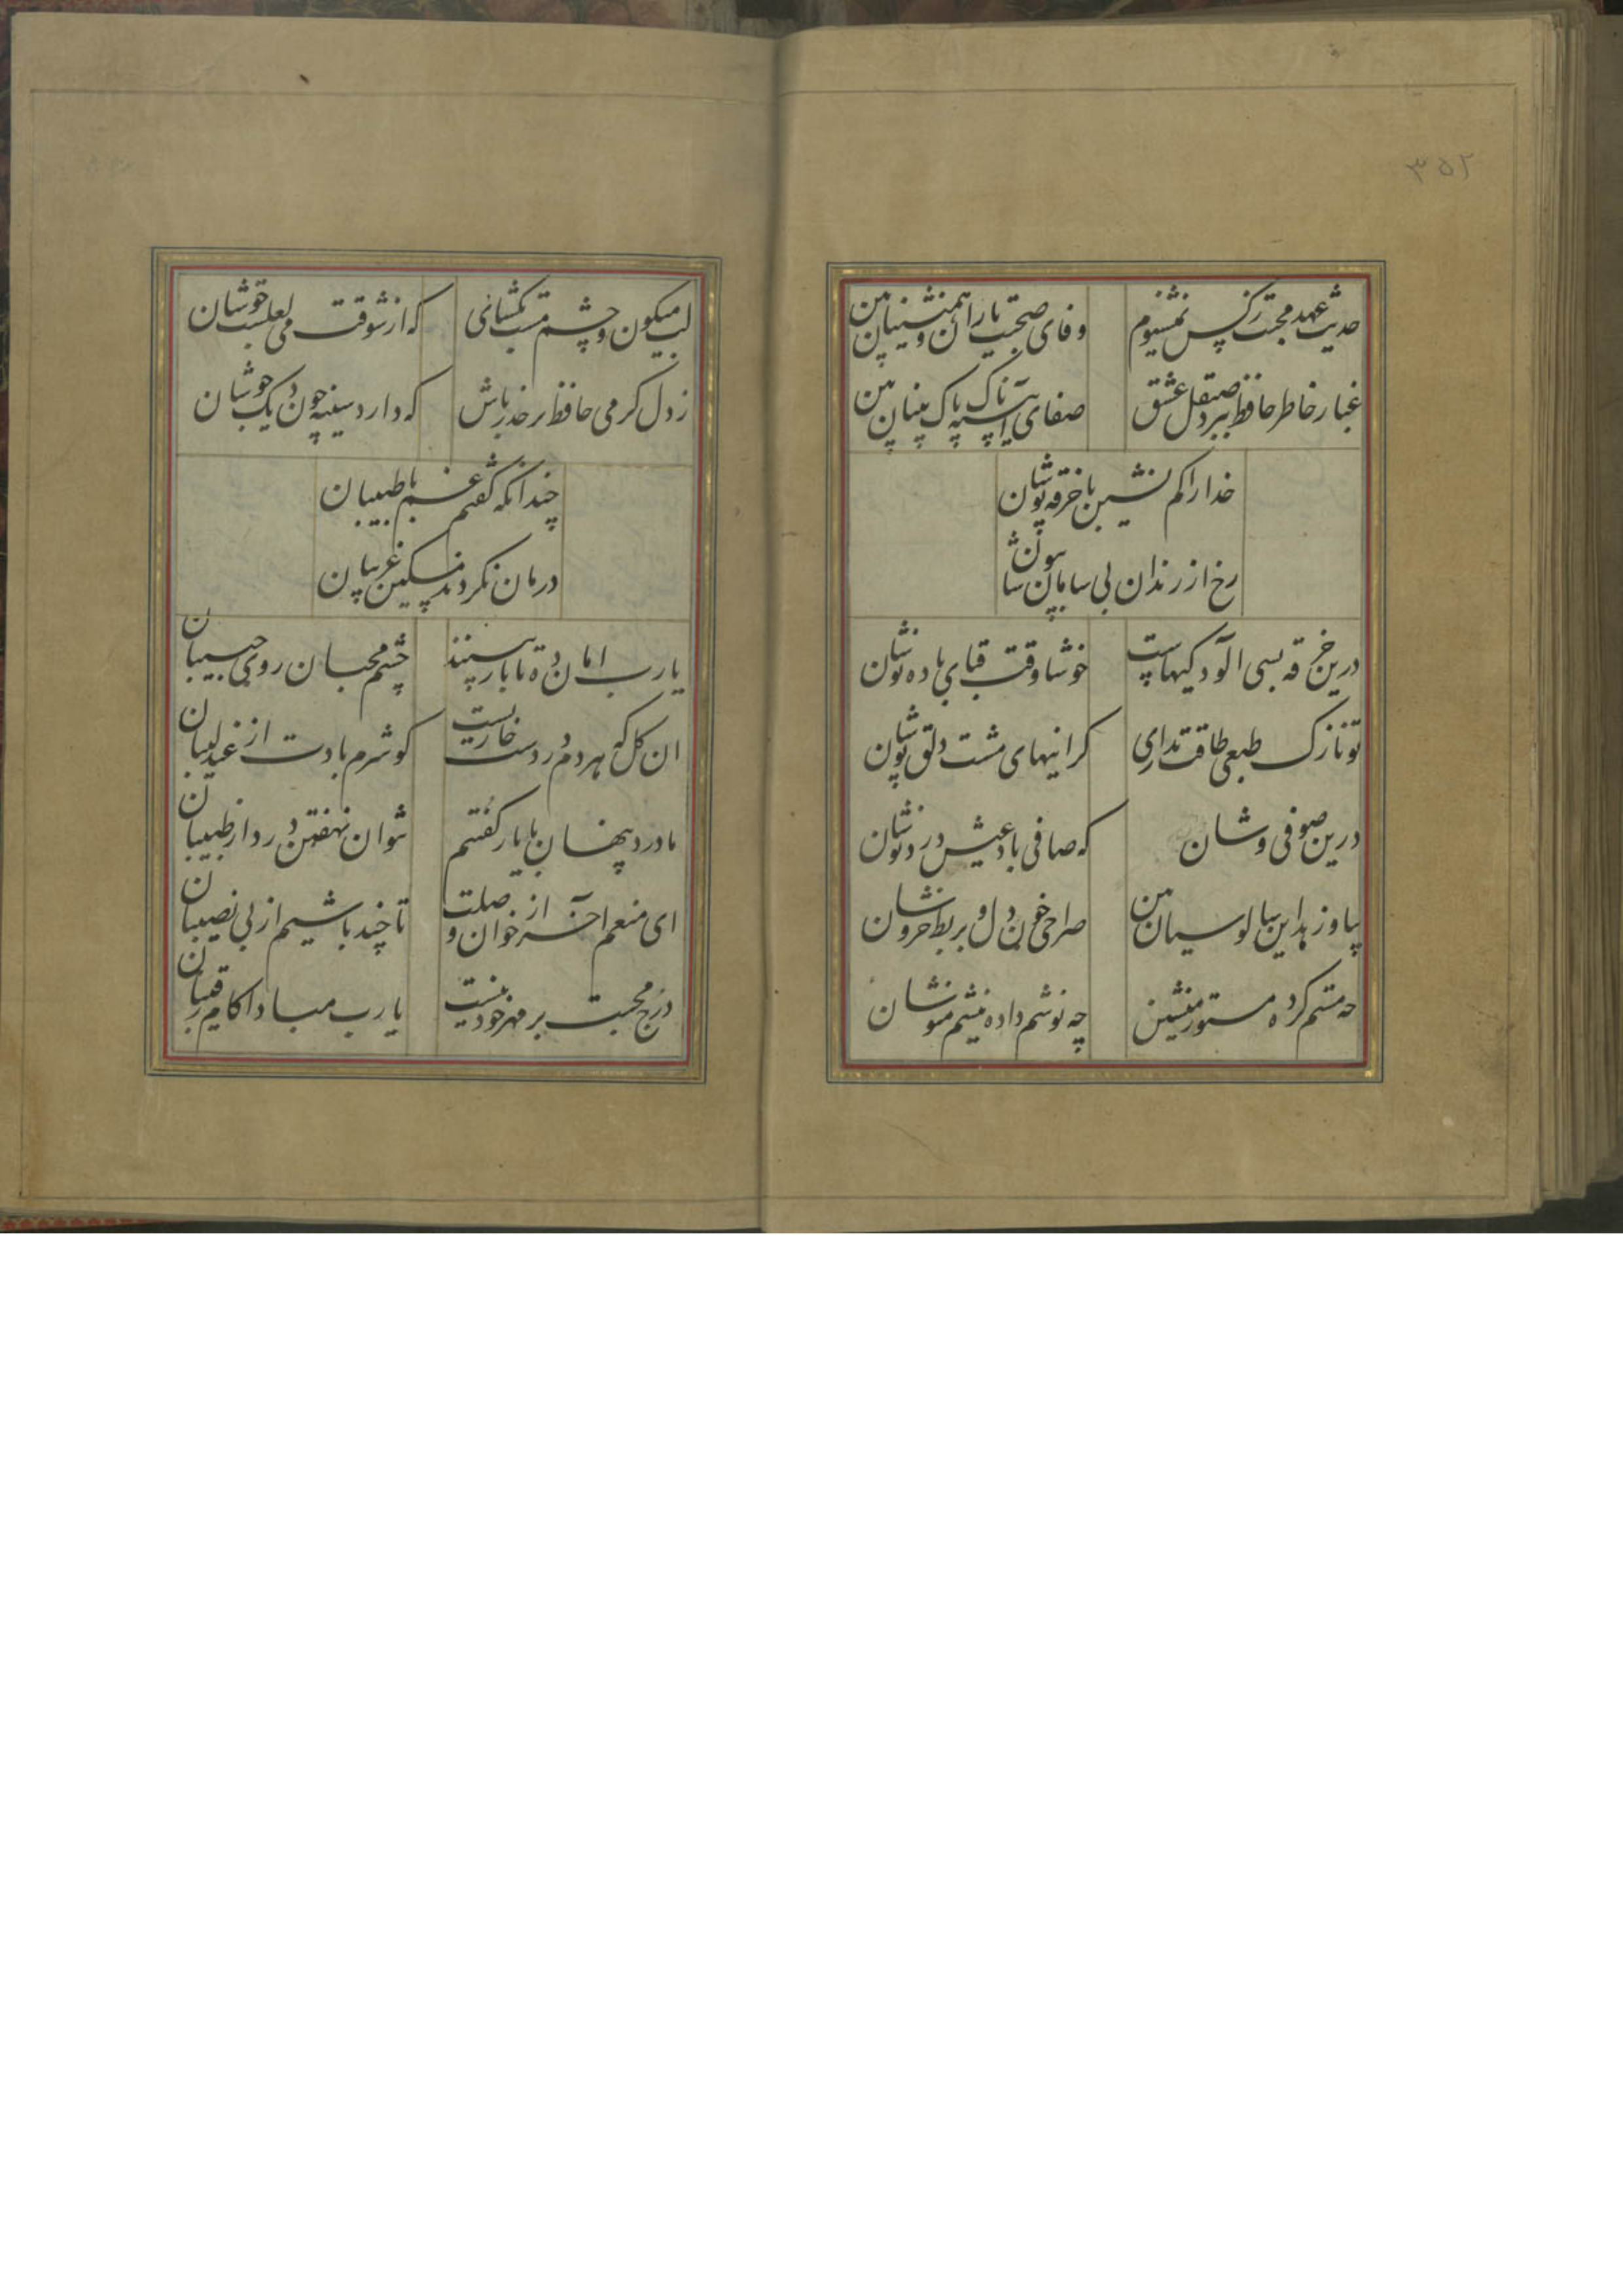 ۳۵۲
حدیث عهد محبت ز کس نمیشنوم
وفای صحبت یاران و همنشینان بین
غبار خاطر حافظ ببرد صیقل عشق
صفای آینه پاک پاک بینان بین
خدا را کم نشین با خرقه پوشان
رخ از رندان بی سامان مپوشان
درین خرقه بسی الودکیهاست
خوشا وقت قبای باده نوشان
تو نازک طبعی طاقت نداری
کرانیهای مشت دلق پوشان
درین صوفی وشان
که صافی باد عیش درد نوشان
بیا وز این سالوسیان بین
صراحی خون دل و بربط خروشان
چه مستم کرده مستور منشین
چه نوشم داده نیشم منوشان
لب میکون و چشم مست بکشای
که از شوقت می لعلست جوشان
ز دل کرمی حافظ بر حذر باش
که دارد سینه چون دیک جوشان
چندانکه گفتم غم با طبیبان
درمان نکردند مسکین غریبان
یا رب امان ده تا باز بیند
چشم محبان روی حبیبان
ان کل که هر دم در دست خاریست
کو شرم بادت از عندلیبان
ما درد پنهان با یار گفتیم
نتوان نهفتن درد از طبیبان
ای منعم آخر از خوان وصلت
تا چند باشیم از بی نصیبان
درج محبت بر مهر خود نیست
یا رب مبادا کام رقیبان